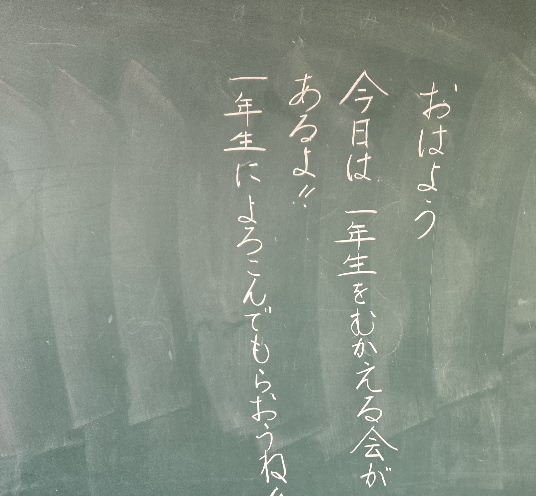 おはよう
今日は 一年生をむかえる会が
あるよ!!
一年生によろこんでもらおうね